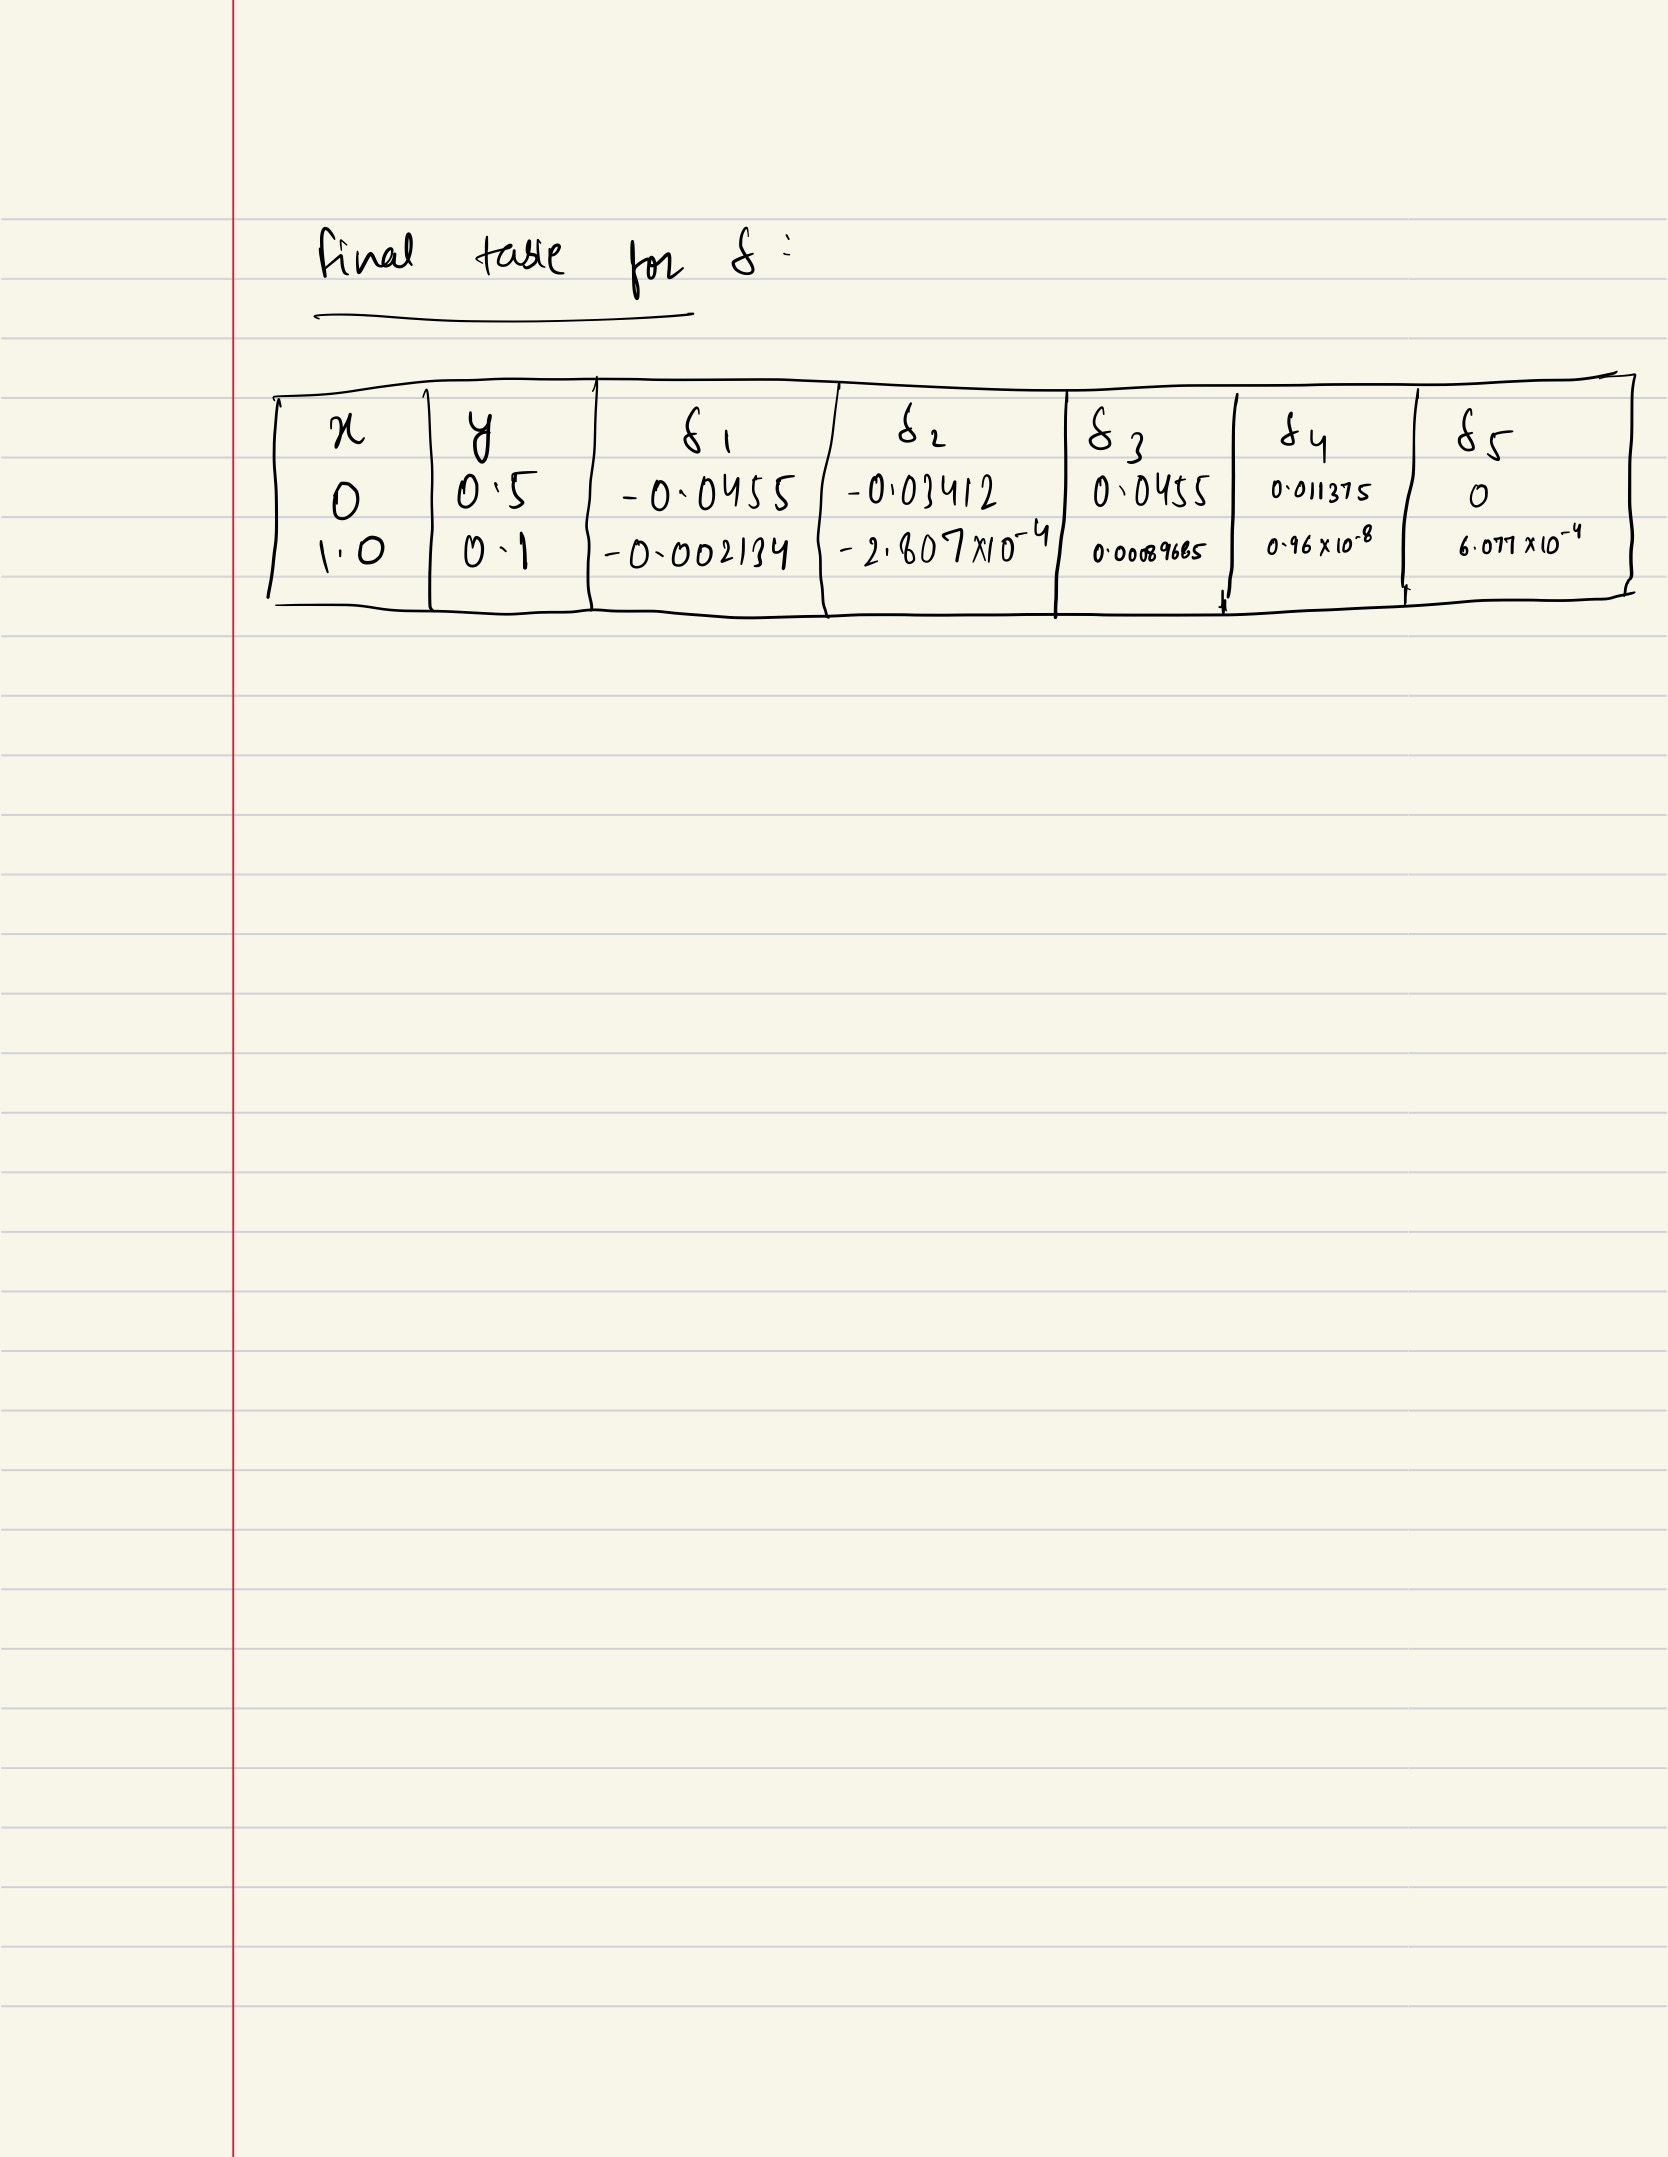 Final table for δ:
x y δ1 δ2 δ3 δ4 δ5
0 0.5 -0.0455 -0.03412 0.0455 0.011375 0
1.0 0.1 -0.002134 -2.807×10⁻⁴ 0.00089685 0.96×10⁻⁸ 6.077×10⁻⁴